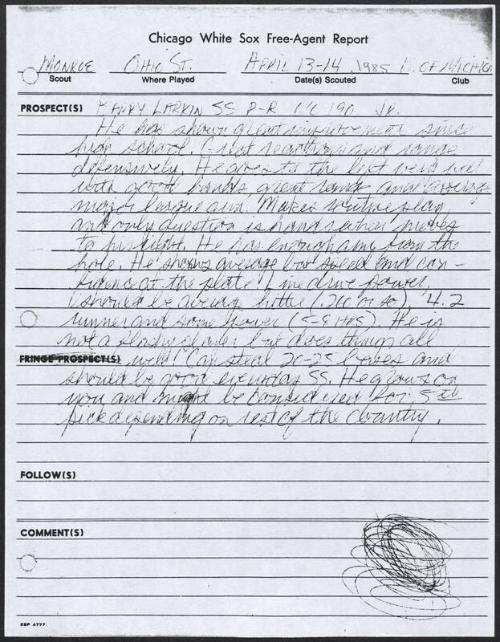 Chicago White Sox Free-Agent Report
MONROE OHIO ST. APRIL 13-14, 1985 U. OF MICHIGAN
Scout Where Played Date(s) Scouted Club
PROSPECT(S) BARRY LARKIN SS R-R 190 JR.
He has shown great improvement since
high school. Great reactions and range
defensively. He goes to the left very well
with good hands great range and average
major league arm. Makes routine play
and only question is hands when moves
to his right. He has enough arm from the
hole. He shows average bat speed and con-
fidence at the plate. Line drive power.
Should be average hitter (.260 or so). 4.2
runner and some power (5-8 HRS). He is
not a flashy player but does things all
FRINGE PROSPECT(S) well. Can steal 20-25 bases and
should be good everyday SS. He grows on
you and might be considered for 5th
pick depending on rest of the country.
FOLLOW(S)
COMMENT(S)